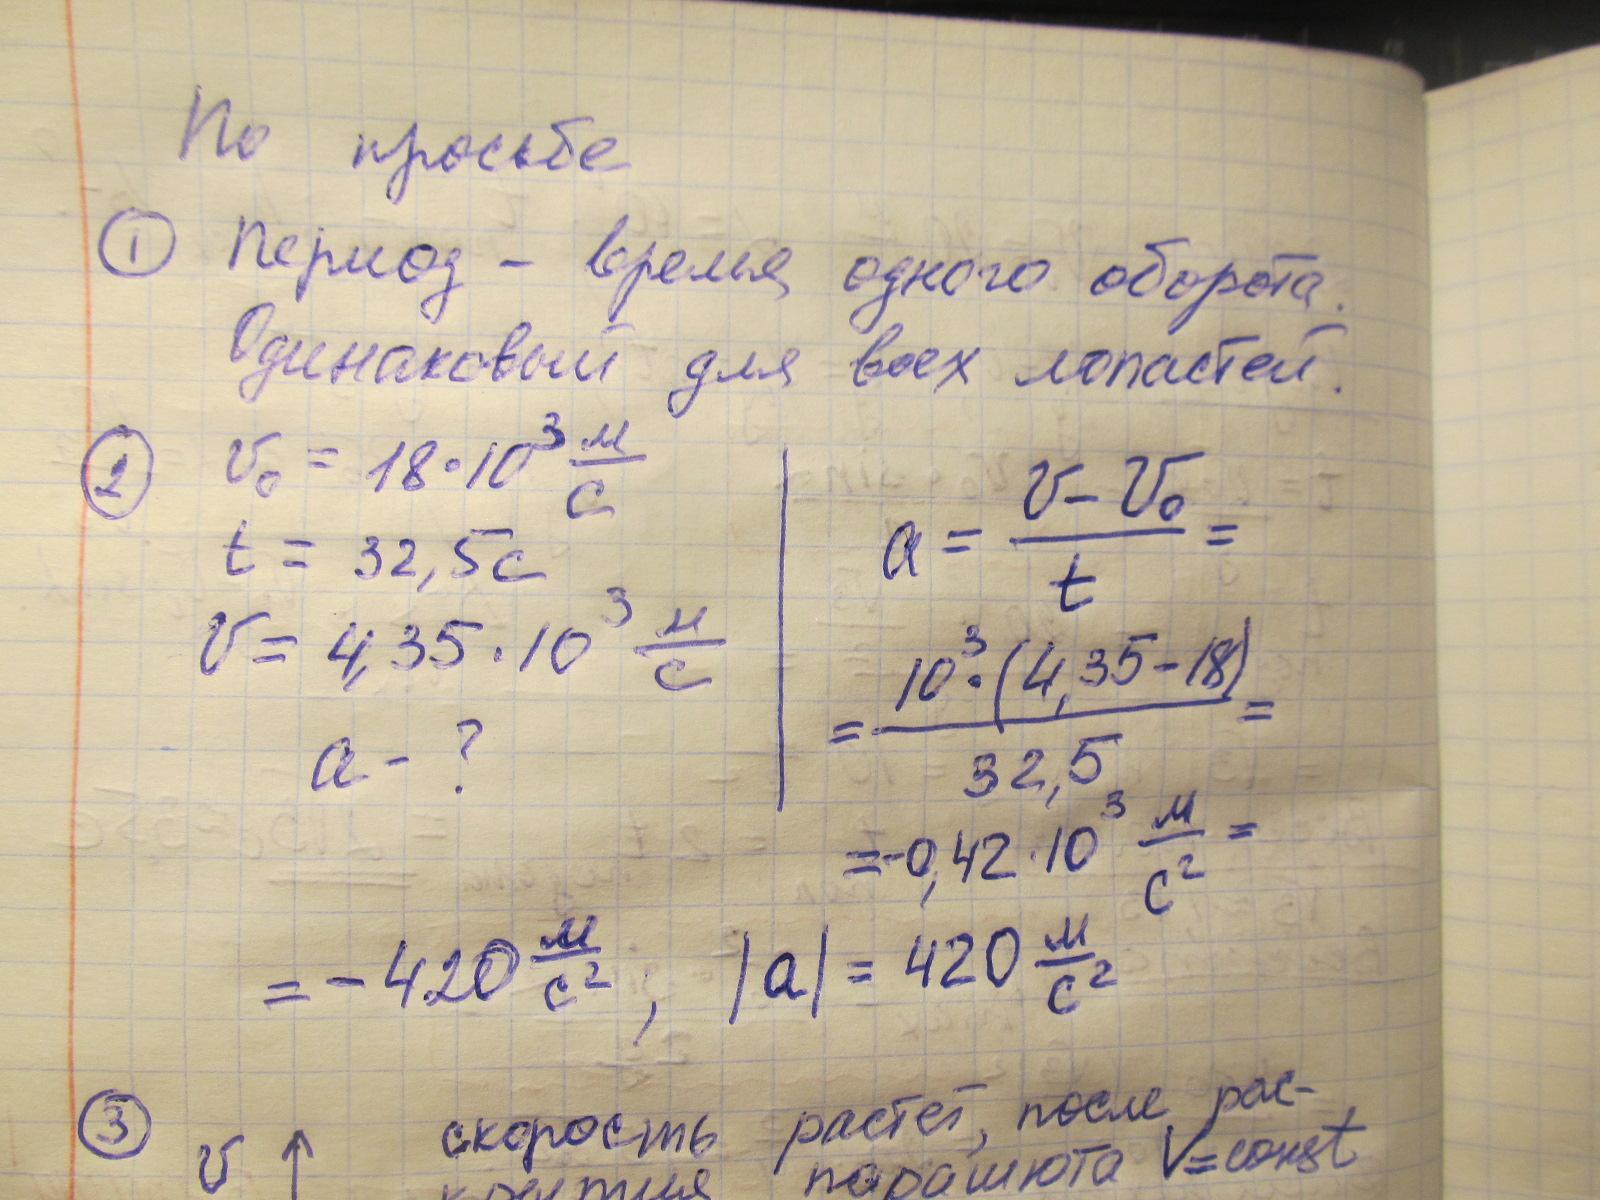 По просьбе
① Период – время одного оборота.
Одинаковый для всех лопастей.
② v₀ = 18·10³ м/с
t = 32,5с
v = 4,35·10³ м/с
a - ?
a = (v – v₀)/t =
= 10³·(4,35-18)/32,5 =
=-0,42·10³ м/с² =
= -420 м/с², |a| = 420 м/с²
③ v ↑ скорость растет, после рас-
крытия парашюта V=const